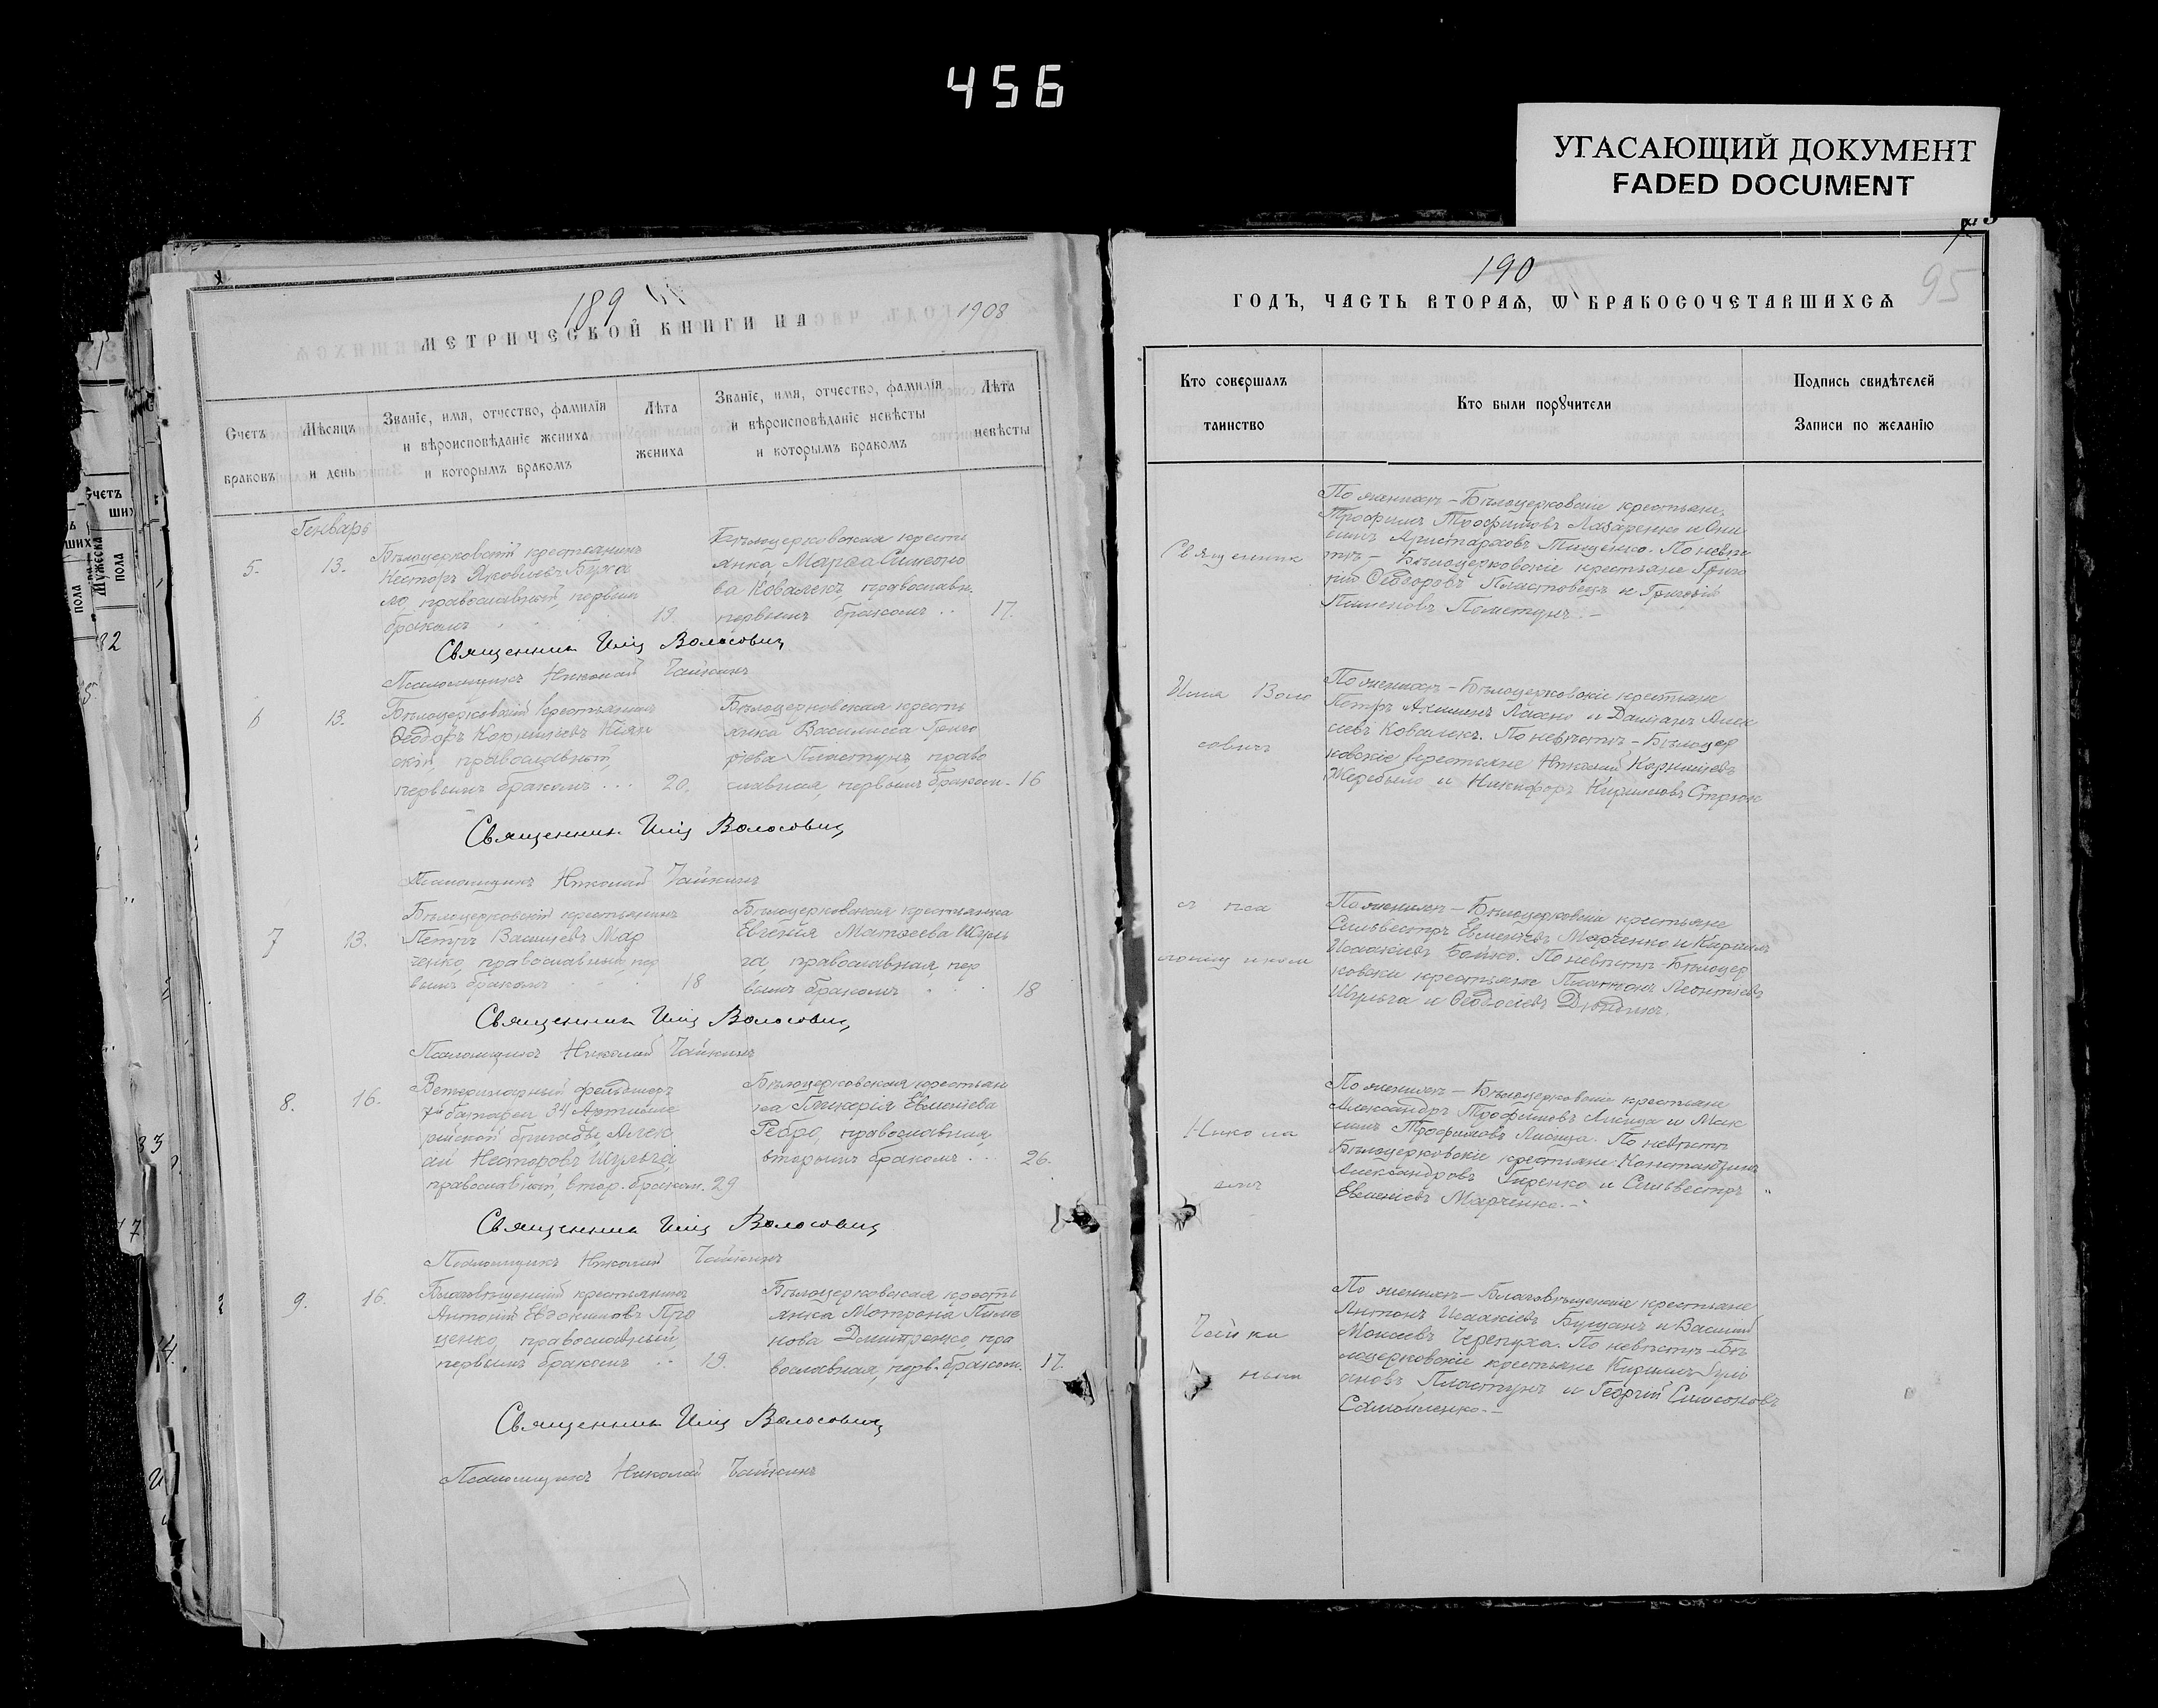 456
УГАСАЮЩИЙ ДОКУМЕНТ
FADED DOCUMENT
189
МЕТРИЧЕСКОЙ КНИГИ НА 1908
Счетъ браковъ
Мѣсяцъ и день
Званіе, имя, отчество, фамилія и вѣроисповѣданіе жениха и которымъ бракомъ
Лѣта жениха
Званіе, имя, отчество, фамилія и вѣроисповѣданіе невѣсты и которымъ бракомъ
Лѣта невѣсты
Генварь
5. 13.
Бѣлоцерковскій крестьянинъ
Несторъ Яковлевъ
православный, первымъ
бракомъ 19.
Бѣлоцерковская кресть
янка Марѳа Симеоно
ва Ковалекъ, православн.
первымъ бракомъ .. 17.
Священникъ Илія Волосовичъ
Псаломщикъ Николай Чайкинъ
6 13.
Бѣлоцерковскій крестьянинъ
Ѳеодоръ Корнилiевъ Кіян
скій, православный,
первымъ бракомъ ... 20.
Бѣлоцерковская кресть
янка Василисса Григо
ріева Пластунъ, право
славная, первымъ браком. 16
Священникъ Илія Волосовичъ
Псаломщикъ Николай Чайкинъ
7 13.
Бѣлоцерковскій крестьянинъ
Петръ Васильевъ Мар
ченко, православный, пер
вымъ бракомъ . . . 18
Бѣлоцерковская крестьянка
Евгенія Матѳеева Шуль
га, православная, пер
вымъ бракомъ . . . 18
Священникъ Илія Волосовичъ
Псаломщикъ Николай Чайкинъ
8. 16.
Ветеринарный фельдшеръ
батареи 34 Артилле
рійской бригады, Алек
сѣй Несторовъ Шульга,
православный, втор. браком. 29
Бѣлоцерковская крестьян
ка Гликерія Евменіева
Ребро, православная,
вторымъ бракомъ ... 26.
Священникъ Илія Волосовичъ
Псаломщикъ Николай Чайкинъ
9. 16.
Благовѣщенскій крестьянинъ
Антоній Евдокимовъ Про
ценко, православный,
первымъ бракомъ .. 19.
Бѣлоцерковская кресть
янка Мотрона Пиме
нова Дмитренко, пра
вославная, перв. браком. 17.
Священникъ Илія Волосовичъ
Псаломщикъ Николай Чайкинъ
190
95
ГОДЪ, ЧАСТЬ ВТОРАЯ, Ѡ БРАКОСОЧЕТАВШИХСЯ
Кто совершалъ таинство
Кто были порꙋчители
Подпись свидѣтелей
Записи по желанію
Священникъ
Илія Воло
совичъ
съ пса
ломщикомъ
Никола
емъ
Чайки
нымъ
По женихѣ – Бѣлоцерковскіе крестьяне
Трофимъ Трофимовъ Лазаренко и Они
симъ Аристарховъ Тищенко. По невѣс
тѣ – Бѣлоцерковскіе крестьяне Григо
рій Ѳеодоровъ Пластовецъ и Григорій
Пименовъ –
По женихѣ – Бѣлоцерковскіе крестьяне
Петръ Акимовъ Лахно и Даміанъ Алек
сіевъ Ковалекъ. По невѣстѣ – Бѣлоцер
ковскіе крестьяне Николай Корниліевъ
Жеребыло и Никифоръ Кирилловъ Стрюк
По женихѣ – Бѣлоцерковскіе крестьяне
Сильвестръ Евменіевъ Марченко и Кириллъ
Исаакіевъ Бойко. По невѣстѣ Бѣлоцер
ковскіе крестьяне Платонъ Леонтіевъ
Шульга и Ѳеодосіевъ
По женихѣ – Бѣлоцерковскіе крестьяне
Александръ Трофимовъ Лисица и Мак
симъ Трофимовъ Лисица. По невѣстѣ
Бѣлоцерковскіе крестьяне: Константинъ
Александровъ Гиренко и Сильвестръ
Евменіевъ Марченко. –
По женихѣ – Благовѣщенскіе крестьяне
Антонъ Исаакіевъ Бущанъ и Василій
Моисеевъ Черепуха. По невѣстѣ – Бѣ
лоцерковскіе крестьяне Кириллъ Іулі
ановъ Пластунъ и Георгій Симеоновъ
Самойленко. –